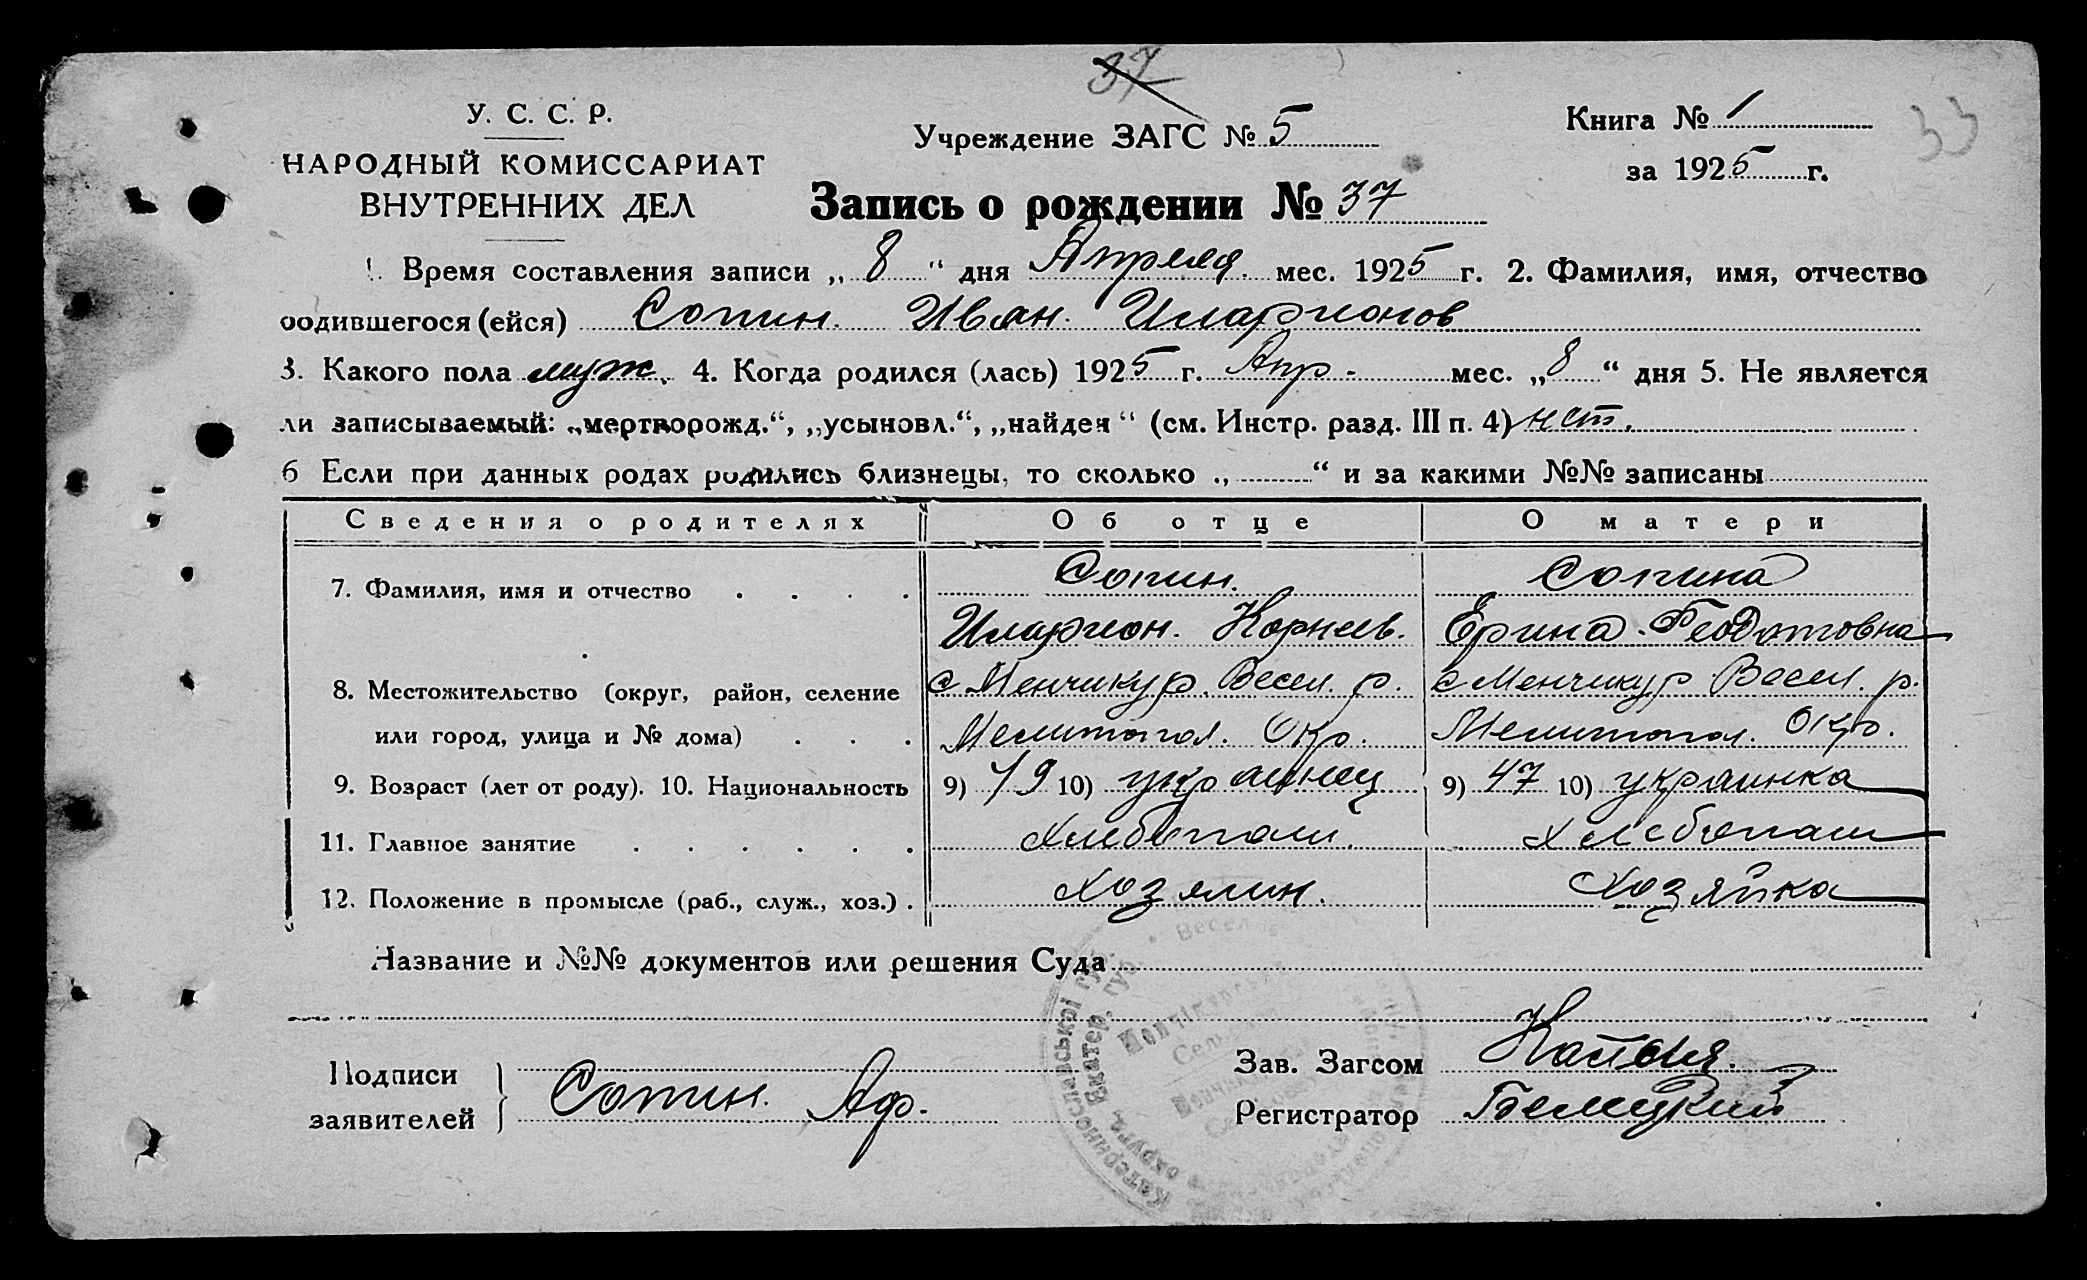 37
У. С. С. Р.
НАРОДНЫЙ КОМИССАРИАТ
ВНУТРЕННИХ ДЕЛ
Учреждение ЗАГС № 5
Книга № 1
за 1925 г.
33
Запись о рождении № 37
1. Время составления записи „ 8 “ дня Апреля мес. 1925 г. 2. Фамилия, имя, отчество
родившегося (ейся) Сопин. Иван. Иларионов
3. Какого пола муж. 4. Когда родился (лась) 1925 г. Апр - мес. „ 8 “ дня 5. Не является
ли записываемый: „мертворожд.“, „усыновл.“, „найден“ (см. Инстр. разд. III п. 4) нет.
6 Если при данных родах родились близнецы, то сколько „ “ и за какими №№ записаны
Сведения о родителях Об отце О матери
7. Фамилия, имя и отчество Сопин. Сопина
Иларион. Корнеев. Ерина. Феодотовна
8. Местожительство (округ, район, селение с Менчикур. Весел. р. с Менчикур Весел. р.
или город, улица и № дома) Мелитопол. Окр. Мелитопол. Окр.
9. Возраст (лет от роду). 10. Национальность 9) 49 10) украинец 9) 47 10) украинка
11. Главное занятие Хлебопаш. Хлебопаш
12. Положение в промысле (раб., служ., хоз.) Хозяин. Хозяйка
Название и №№ документов или решения Суда
Подписи
заявителей
Сопин. Аф.
Зав. Загсом
Регистратор Белецкий
Катеринославської губ.